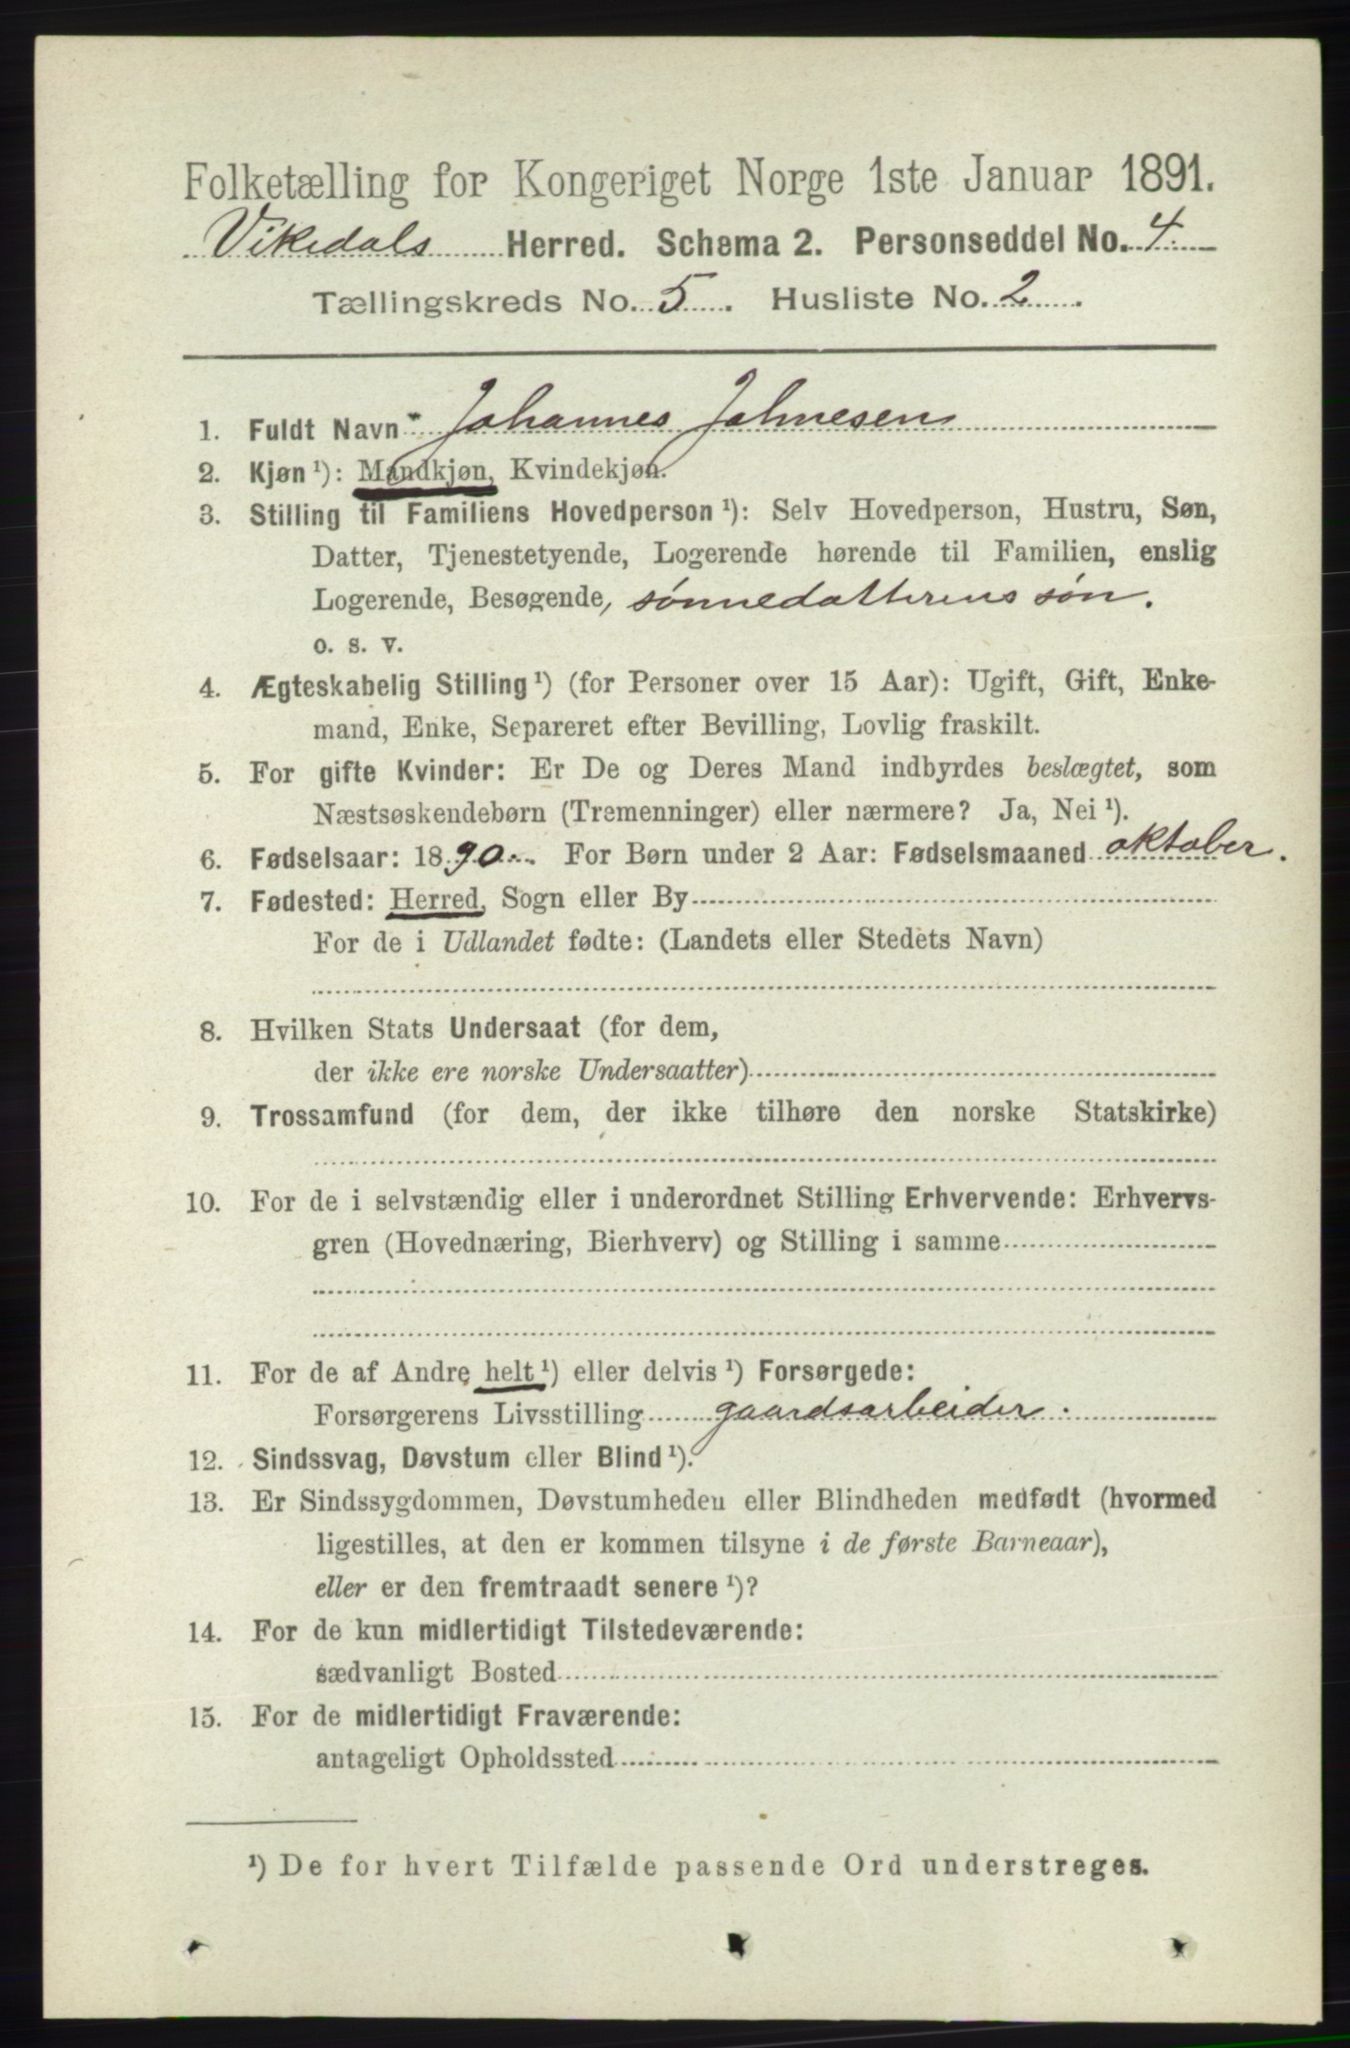 Folketælling for Kongeriget Norge 1ste Januar 1891.
Vikedals Herred. Schema 2. Personseddel No. 4.
Tællingskreds No. 5. Husliste No. 2.
1. Fuldt Navn Johannes Johnesen
2. Kjøn ¹): Mandkjøn, Kvindekjøn.
3. Stilling til Familiens Hovedperson ¹): Selv Hovedperson, Hustru, Søn,
Datter, Tjenestetyende, Logerende hørende til Familien, enslig
Logerende, Besøgende, sønnedatterens søn.
o. s. v.
4. Ægteskabelig Stilling ¹) (for Personer over 15 Aar): Ugift, Gift, Enke-
mand, Enke, Separeret efter Bevilling, Lovlig fraskilt.
5. For gifte Kvinder: Er De og Deres Mand indbyrdes beslægtet, som
Næstsøskendebørn (Tremenninger) eller nærmere? Ja, Nei ¹).
6. Fødselsaar: 1890. For Børn under 2 Aar: Fødselsmaaned oktober.
7. Fødested: Herred, Sogn eller By
For de i Udlandet fødte: (Landets eller Stedets Navn)
8. Hvilken Stats Undersaat (for dem,
der ikke ere norske Undersaatter)
9. Trossamfund (for dem, der ikke tilhøre den norske Statskirke)
10. For de i selvstændig eller i underordnet Stilling Erhvervende: Erhvervs-
gren (Hovednæring, Bierhverv) og Stilling i samme
11. For de af Andre helt ¹) eller delvis ¹) Forsørgede:
Forsørgerens Livsstilling gaardsarbeider.
12. Sindssvag, Døvstum eller Blind ¹).
13. Er Sindssygdommen, Døvstumheden eller Blindheden medfødt (hvormed
ligestilles, at den er kommen tilsyne i de første Barneaar),
eller er den fremtraadt senere ¹)?
14. For de kun midlertidigt Tilstedeværende:
sædvanligt Bosted
15. For de midlertidigt Fraværende:
antageligt Opholdssted
¹) De for hvert Tilfælde passende Ord understreges.